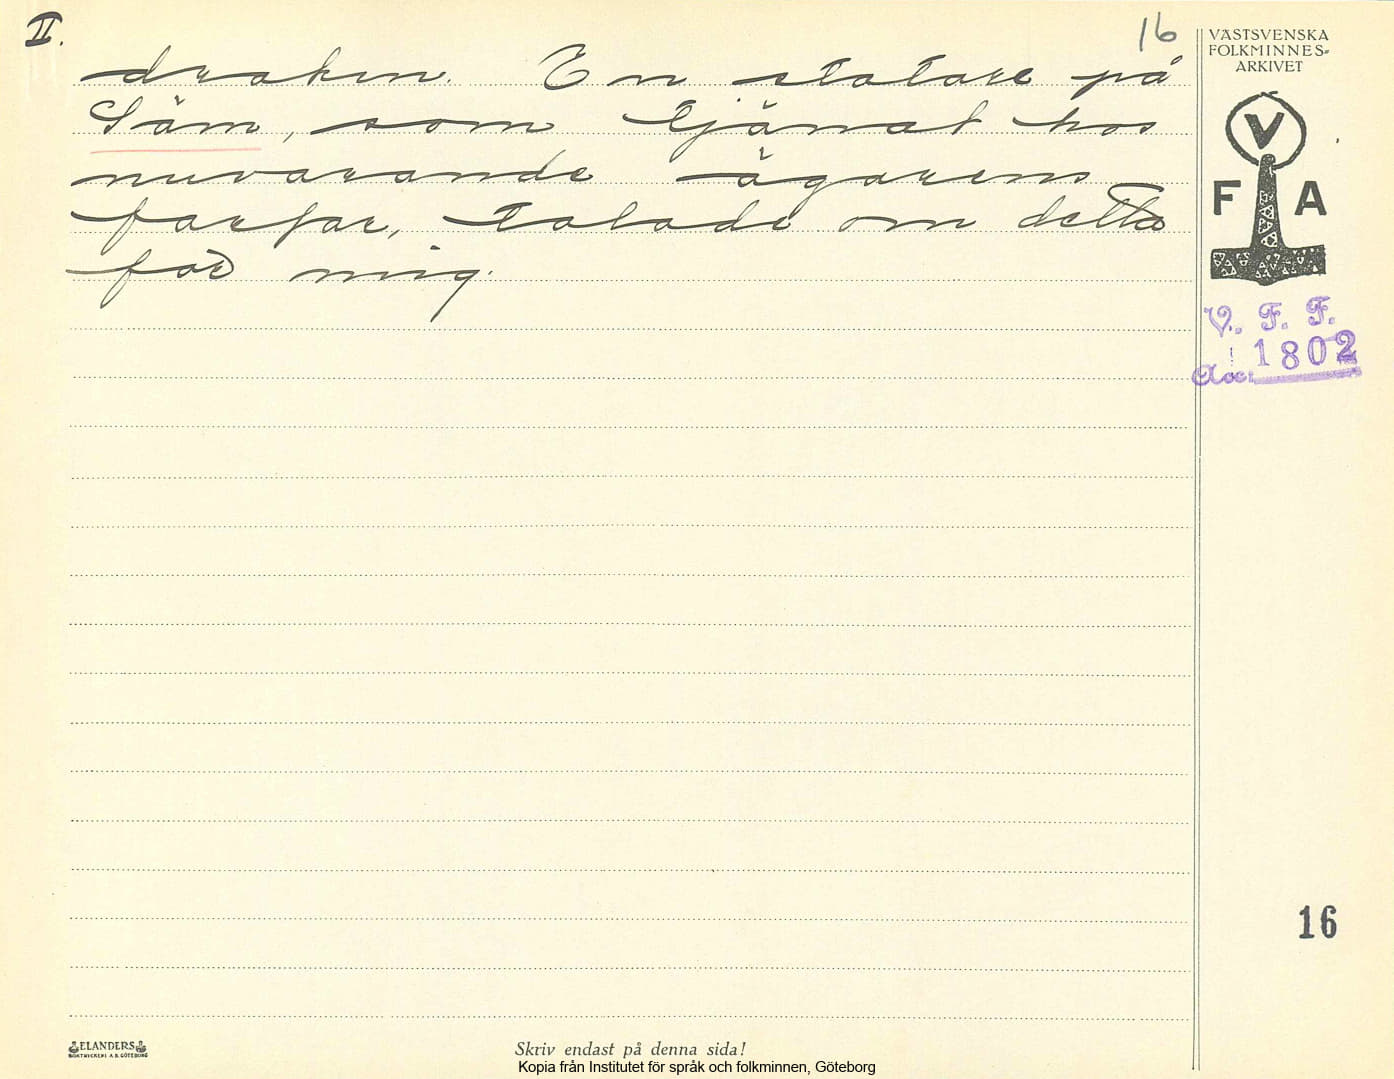 II.
16
VÄSTSVENSKA
FOLKMINNES-
ARKIVET
draken. En statare på
Säm, som tjänat hos
nuvarande ägarens
farfar, talade om detta
for mig.
V
F A
V. F. F.
Acc: 1802
16
ELANDERS
BOKTRYCKERI A.B. GÖTEBORG
Skriv endast på denna sida!
Kopia från Institutet för språk och folkminnen, Göteborg